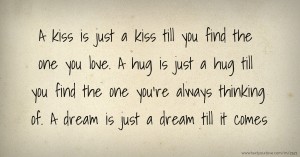 A kiss is just a kiss till you find the
one you love. A hug is just a hug till
you find the one you're always thinking
of. A dream is just a dream till it comes